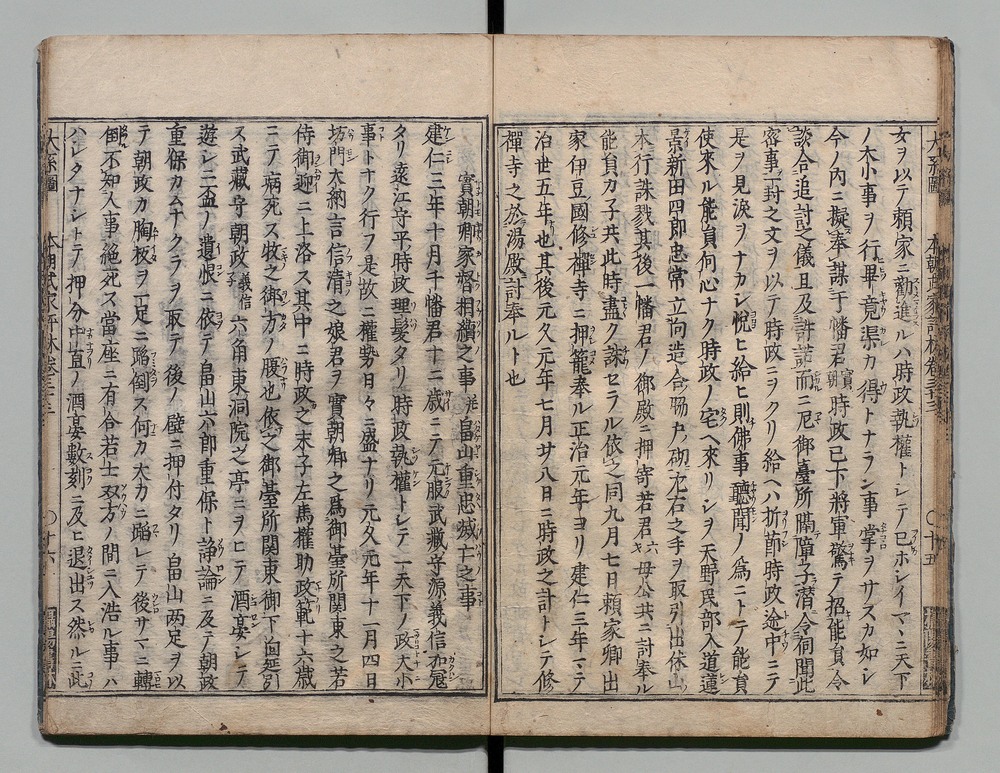 女ヲ以テ頼家ニ勧進ルハ時政執權トシテ已ホシイマヽニ天下
ノ大小事ヲ行畢竟渠カ得トナラン事掌ヲサスカ如シ
今ノ内ニ擬奉謀千幡君實朝時政已下將軍驚テ招能員令
談合追討之儀且及許諾而ニ尼御臺所隔障子潜令伺聞此
密事一封之文ヲ以テ時政ニヲクリ給ヘハ折節時政途中ニテ
是ヲ見涙ヲナカシ悦ヒ給ヒ則佛事聽聞ノ爲ニトテ能員
使來ル能員何心ナク時政ノ宅ヘ來リシヲ天野民部入道蓮
景新田四郎忠常立向造合脇戸ノ砌左右之手ヲ取引出
本行誅戮其後一幡君ノ御殿ニ押寄若君六母公共ニ討奉ル
能員カ子共此時盡ク誅セラル依之同九月七日頼家卿出
家伊豆國修禪寺ニ押籠奉ル正治元年ヨリ建仁三年マテ
治世五年也其後元久元年七月廿八日ニ時政之計トシテ修
禪寺之於湯殿討奉ルト也
實朝卿家督相續之事 并畠山重忠滅亡之事
建仁三年十月千幡君十二歳ニテ元服武藏守源義信加冠
タリ遠江守平時政理髪タリ時政執權トシテ一天下ノ政大小
事トナク行フ是故ニ權勢日々ニ盛ナリ元久元年十一月四日
坊門大納言信清之娘君ヲ實朝卿之爲御臺所関東之若
侍御迎ニ上洛ス其中ニ時政之末子左馬權助政範十六歳
ニテ病死ス牧之御方ノ腹也依之御臺所関東御下向延引
ス武藏守朝政義信子六角東洞院之亭ニヲヒテ酒宴シテ
遊シニ一盃ノ遺恨ニ依テ畠山六郎重保ト諍論ニ及テ朝政
重保カムナクラヲ取テ後ノ壁ニ押付タリ畠山両足ヲ以
テ朝政カ胸板ヲ一足ニ蹈倒ス何カ大力ニ蹈レテ後サマニ轉
倒不知人事絶死ス當座ニ有合若士双方ノ間ニ入浩ル事ハ
ハシタナシトテ押分中直ノ酒宴數刻ニ及ヒ退出ス然ルニ此
大系圖 本朝武家評林巻三十三 〇十六